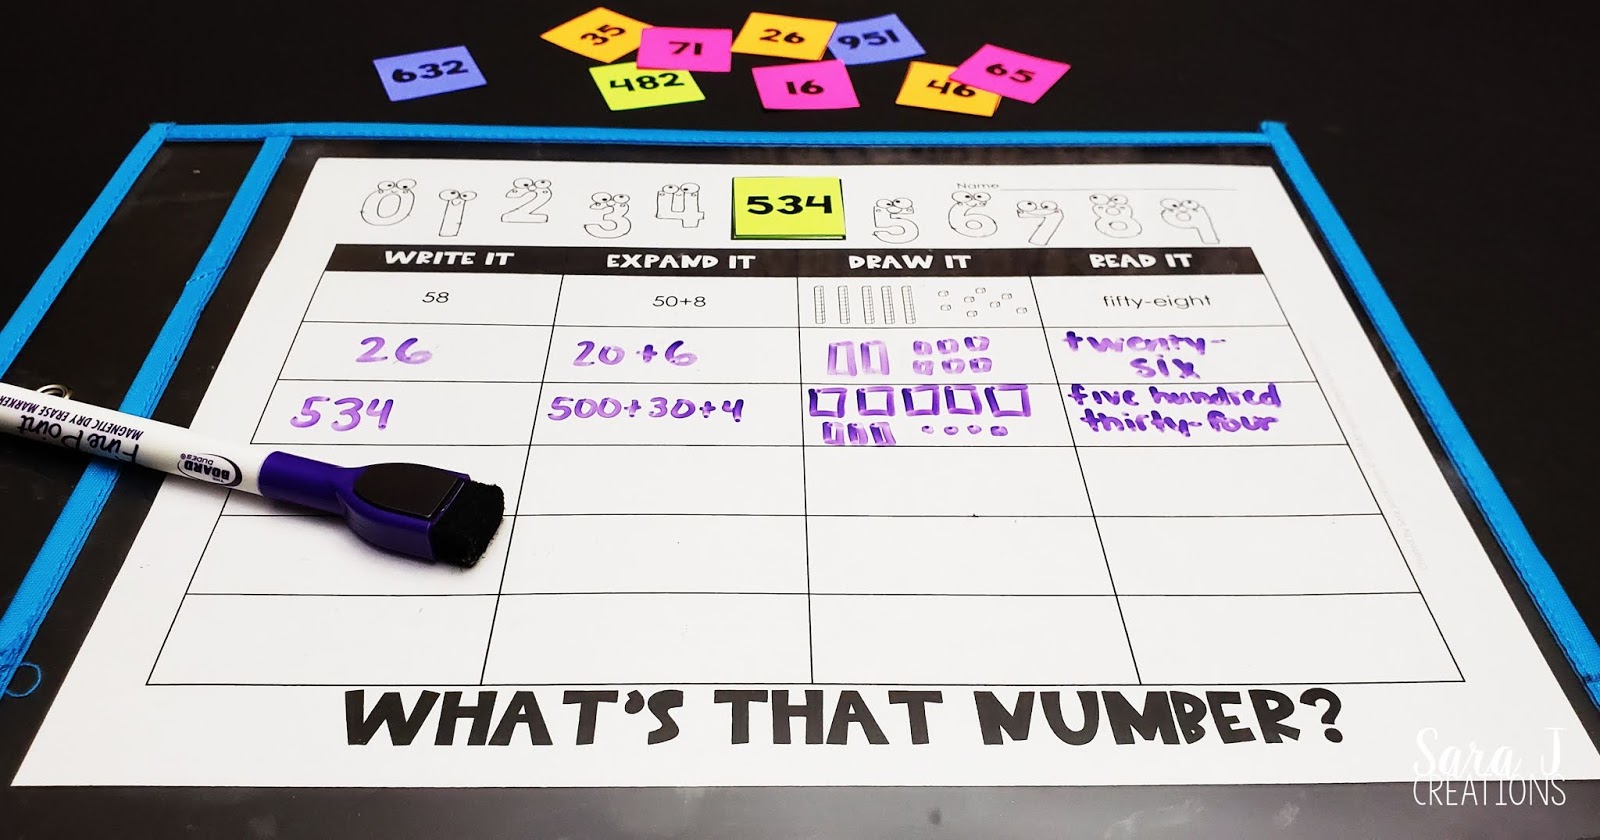 35
26
951
71
632
482
16
46
65
Name
0 1 2 3 4 534 5 6 7 8 9
WRITE IT EXPAND IT DRAW IT READ IT
58 50+8 fifty-eight
26 20+6 twenty-
six
534 500+30+4 five hundred
thirty-four
Fine Point
MAGNETIC DRY ERASE MARKER
THE BOARD
DUDES®
WHAT'S THAT NUMBER?
Sara J
CREATIONS